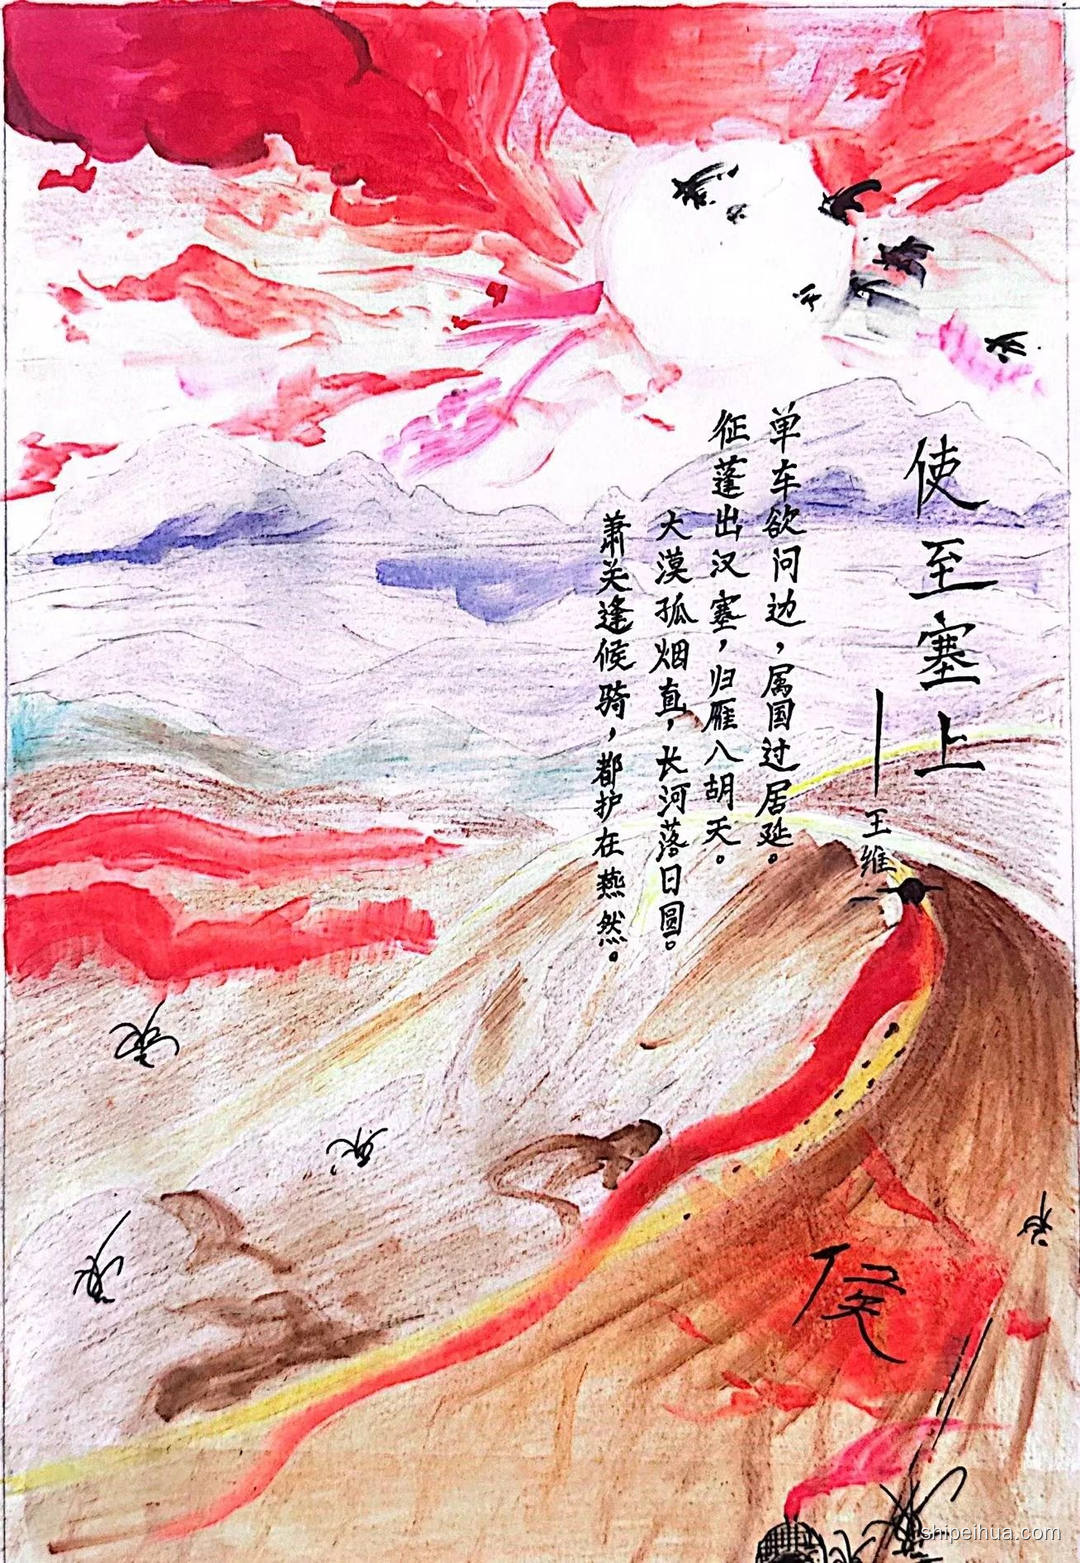 使至塞上
——王维
单车欲问边，属国过居延。
征蓬出汉塞，归雁八胡天。
大漠孤烟直，长河落日圆。
萧关逢候骑，都护在燕然。
侯
shipeihua.com